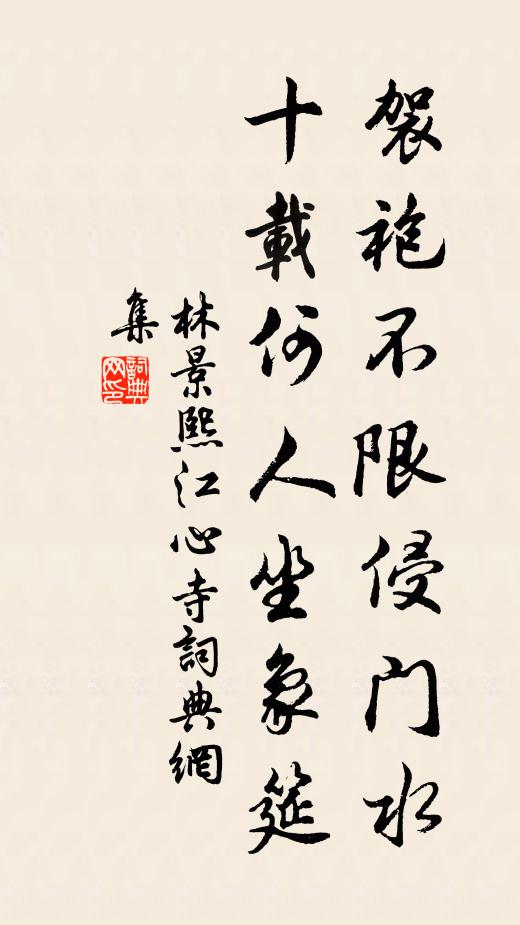 袈袍不限侵门水
十載何人坐象筵
林景熙江心寺詞典網
集
詞典网印